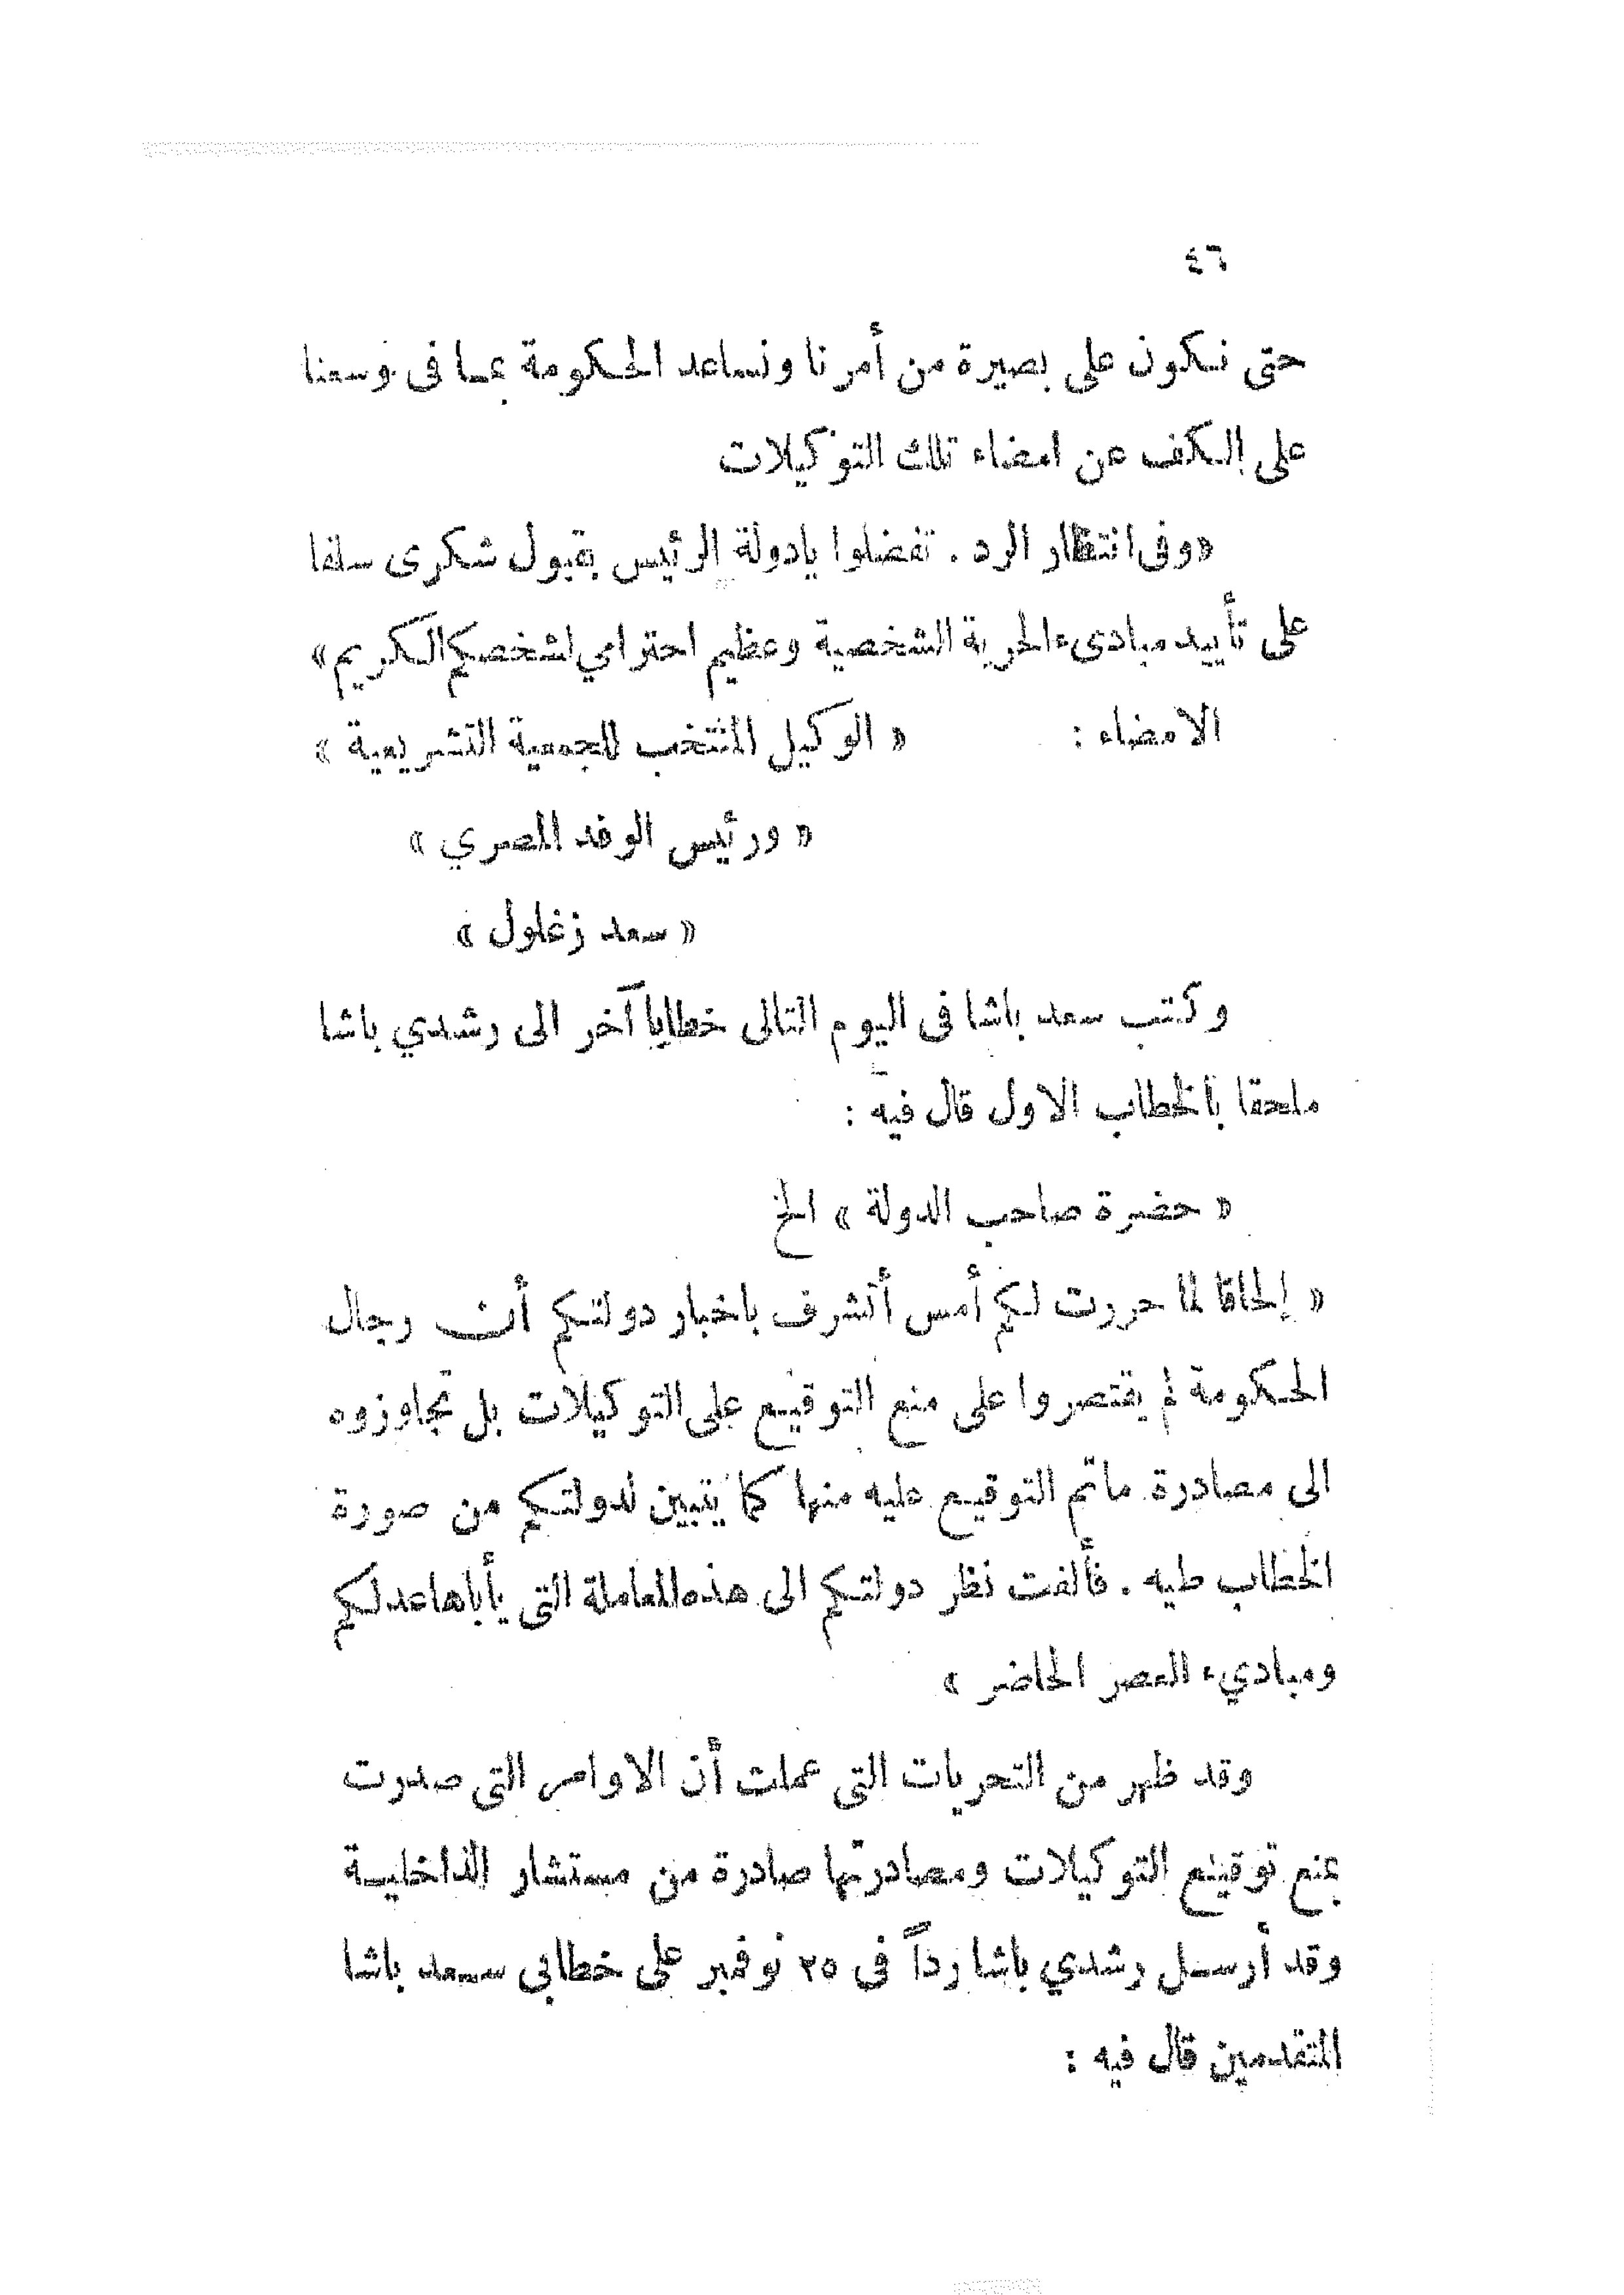 ٤٦
حتى نكون على بصيرة من أمرنا ونساعد الحكومة بما فى وسعنا
على الكف عن امضاء تلك التوكيلات
«وفى انتظار الرد . تفضلوا يادولة الرئيس بقبول شكرى سلفا
على تأييد مبادىء الحرية الشخصية وعظيم احترامي لشخصكم الكريم»
الامضاء : « الوكيل المنتخب للجمعية التشريعية »
« ورئيس الوفد المصري »
« سعد زغلول »
وكتب سعد باشا فى اليوم التالى خطابا آخر الى رشدي باشا
ملحقا بالخطاب الاول قال فيه :
« حضرة صاحب الدولة » الخ
« إلحاقا لما حررت لكم أمس أتشرف باخبار دولتكم أن رجال
الحكومة لم يقتصروا على منع التوقيع على التوكيلات بل تجاوزوه
الى مصادرة ماتم التوقيع عليه منها كما يتبين لدولتكم من صورة
الخطاب طيه . فألفت نظر دولتكم الى هذه المعاملة التى يأباها عدلكم
ومبادىء العصر الحاضر »
وقد ظهر من التحريات التى عملت أن الاوامر التى صدرت
بمنع توقيع التوكيلات ومصادرتها صادرة من مستشار الداخلية
وقد أرسل رشدي باشا رداً فى ٢٥ نوفمبر على خطابى سعد باشا
المتقدمين قال فيه :